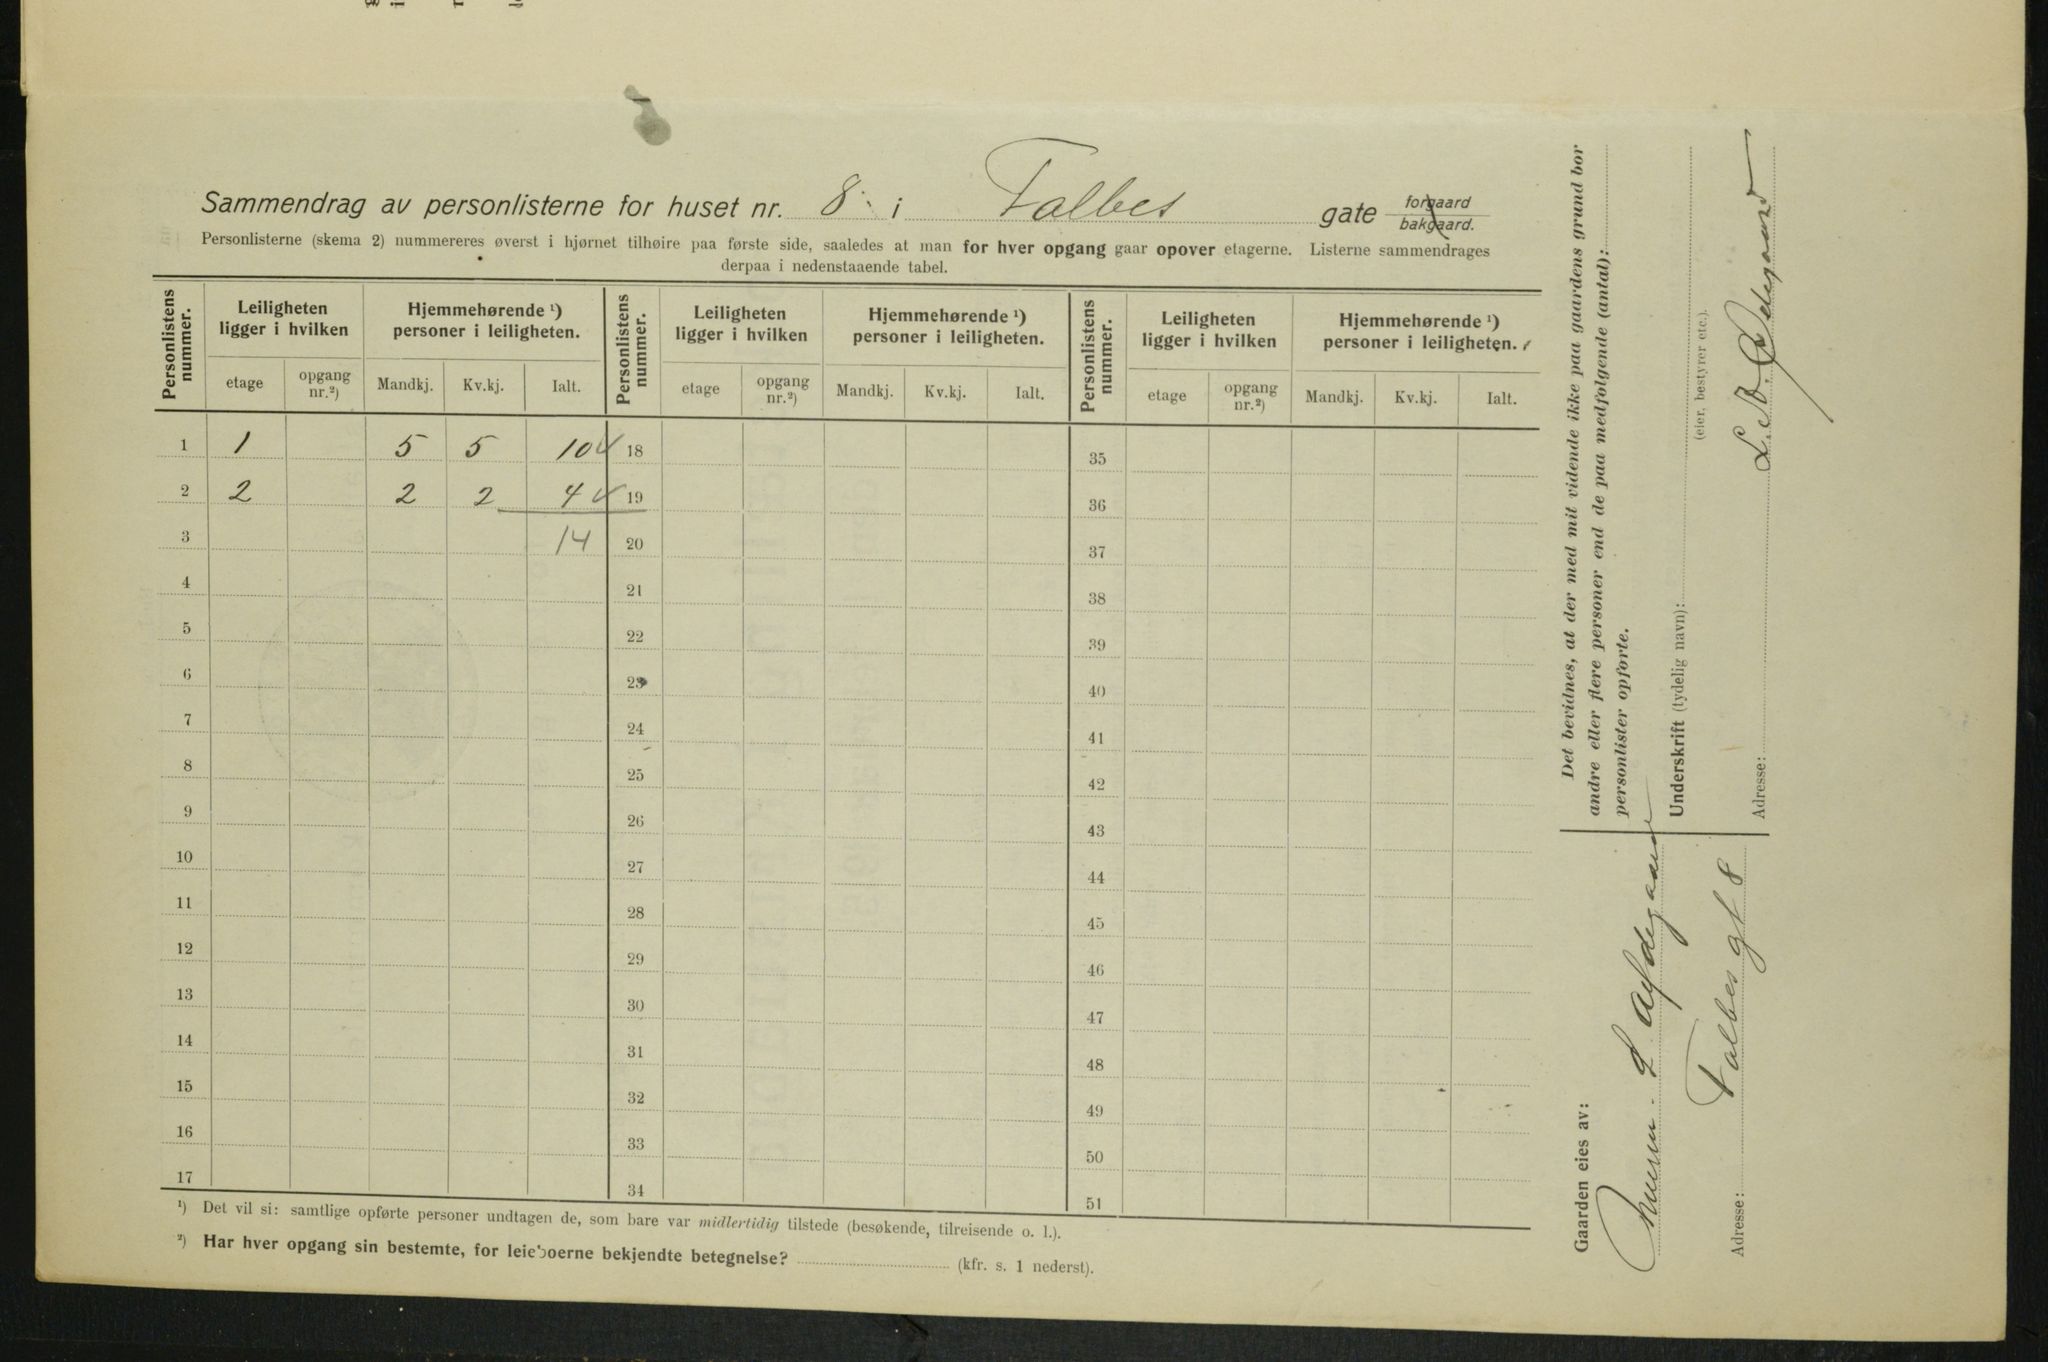 Sammendrag av personlisterne for huset nr. 8 i Falbes gate forgaard bakgaard.
Personlisterne (skema 2) nummereres øverst i hjørnet tilhøire paa første side, saaledes at man for hver opgang gaar opover etagerne. Listerne sammendrages
derpaa i nedenstaaende tabel.
Personlistens nummer. Leiligheten ligger i hvilken Hjemmehørende ¹) personer i leiligheten. Personlistens nummer. Leiligheten ligger i hvilken Hjemmehørende ¹) personer i leiligheten. Personlistens nummer. Leiligheten ligger i hvilken Hjemmehørende ¹) personer i leiligheten.
etage opgang nr.²) Mandkj. Kv.kj. Ialt. etage opgang nr.²) Mandkj. Kv.kj. Ialt. etage opgang nr.²) Mandkj. Kv.kj. Ialt.
1 1 5 5 10 18 35
2 2 2 2 4 19 36
3 14 20 37
4 21 38
5 22 39
6 23 40
7 24 41
8 25 42
9 26 43
10 27 44
11 28 45
12 29 46
13 30 47
14 31 48
15 32 49
16 33 50
17 34 51
¹) Det vil si: samtlige opførte personer undtagen de, som bare var midlertidig tilstede (besøkende, tilreisende o. l.).
²) Har hver opgang sin bestemte, for leieboerne bekjendte betegnelse? (kfr. s. 1 nederst).
Det bevidnes, at der med mit vidende ikke paa gaardens grund bor
andre eller flere personer end de paa medfølgende (antal):
personlister opførte.
Underskrift (tydelig navn):
(eier, bestyrer etc.).
Adresse:
Gaarden eies av:
Adresse: Falbes gt 8